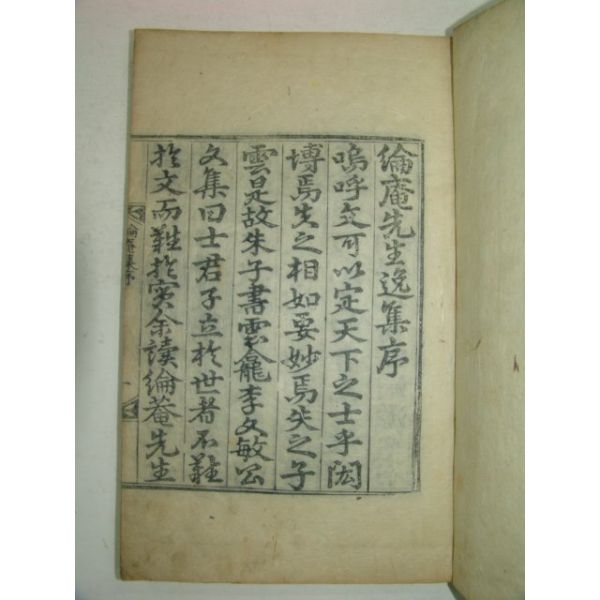 綸庵先生逸集序
嗚呼文可以定天下之士乎閎
博焉失之相如要妙焉失之子
雲是故朱子書雲龕李文敏公
文集曰士君子立於世者不難
於文而難於實余讀綸菴先生
綸菴集序